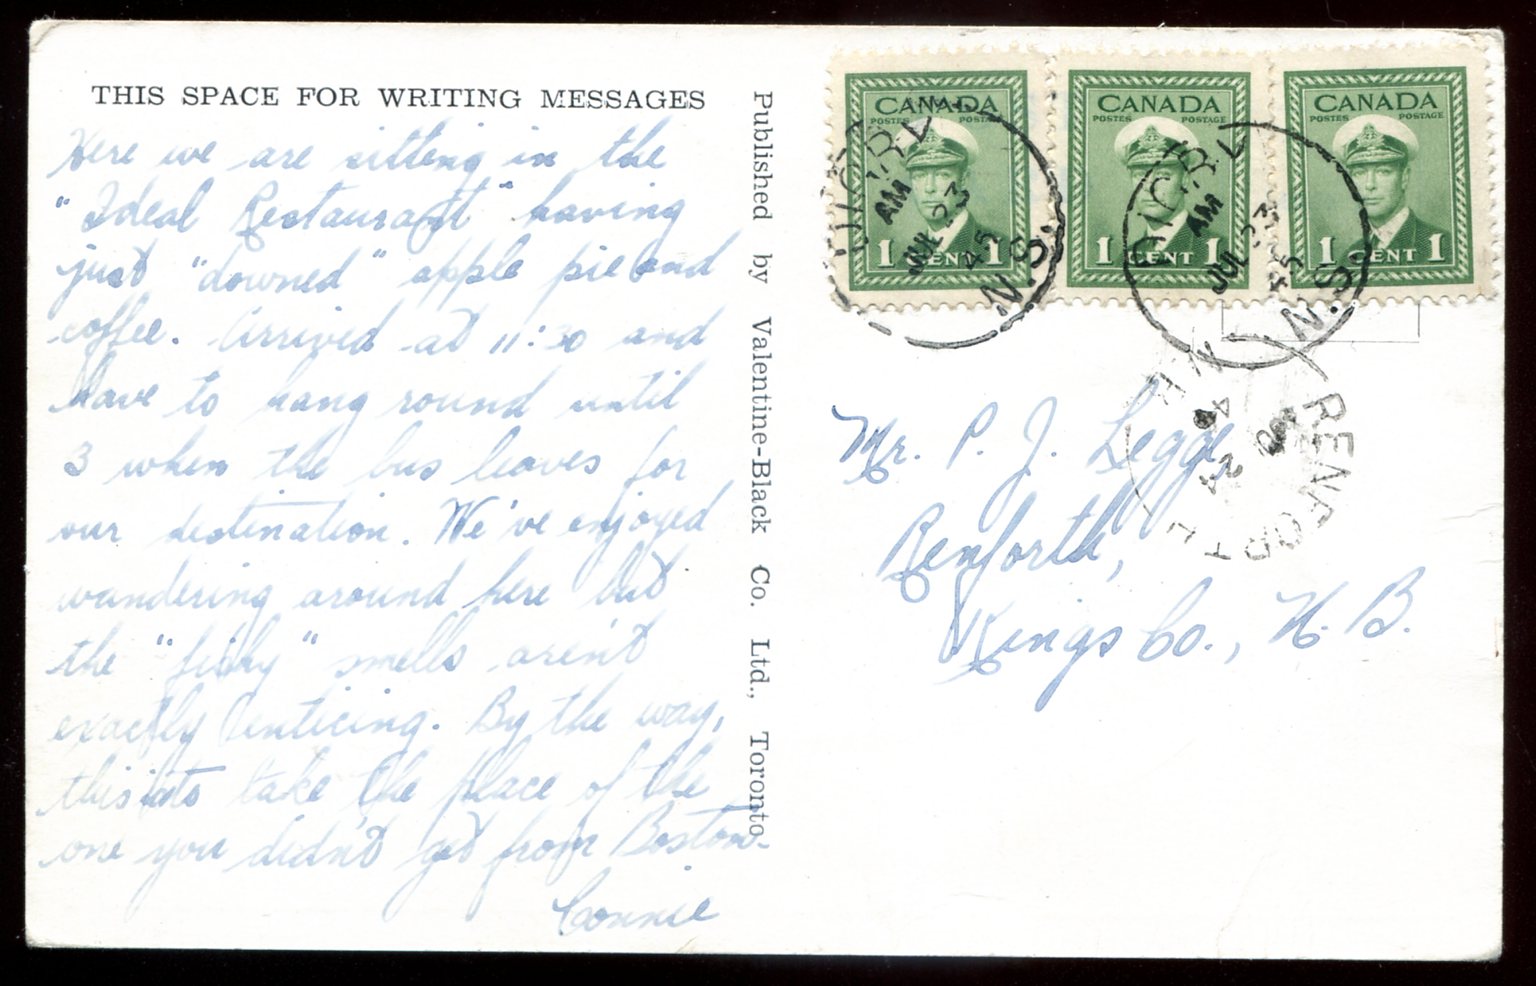 THIS SPACE FOR WRITING MESSAGES
Here we are sitting in the
"Ideal Restaurant" having
just "downed" apple pie and
coffee. Arrived at 11:30 and
have to hang round until
3 when the bus leaves for
our destination. We've enjoyed
wandering around here but
the "fishy" smells aren't
exactly enticing. By the way,
this is to take the place of the
one you didn't get from Boston.
Connie
Published by Valentine-Black Co. Ltd., Toronto.
CANADA
POSTES POSTAGE
1 CENT 1
CANADA
POSTES POSTAGE
1 CENT 1
CANADA
POSTES POSTAGE
1 CENT 1
AM
JUL 23
45
N.S.
AM
JUL 23
45
N.S.
RENFORTH
Mr. P. J. Legge,
Renforth,
Kings Co., N. B.